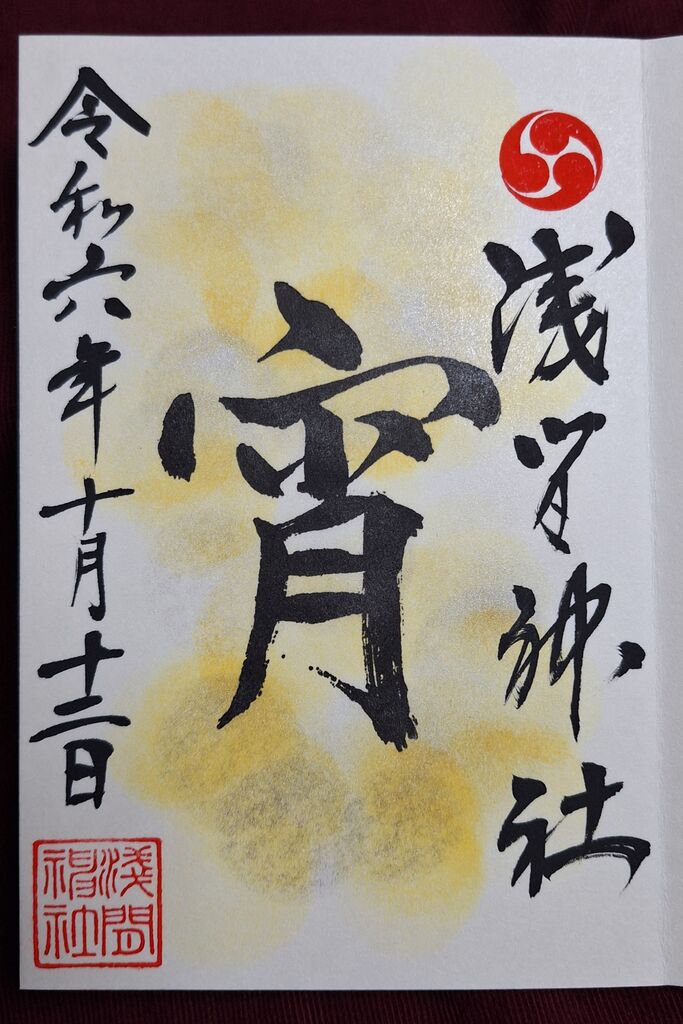 浅间神社
宵
令和六年十月十二日
淺間
神社